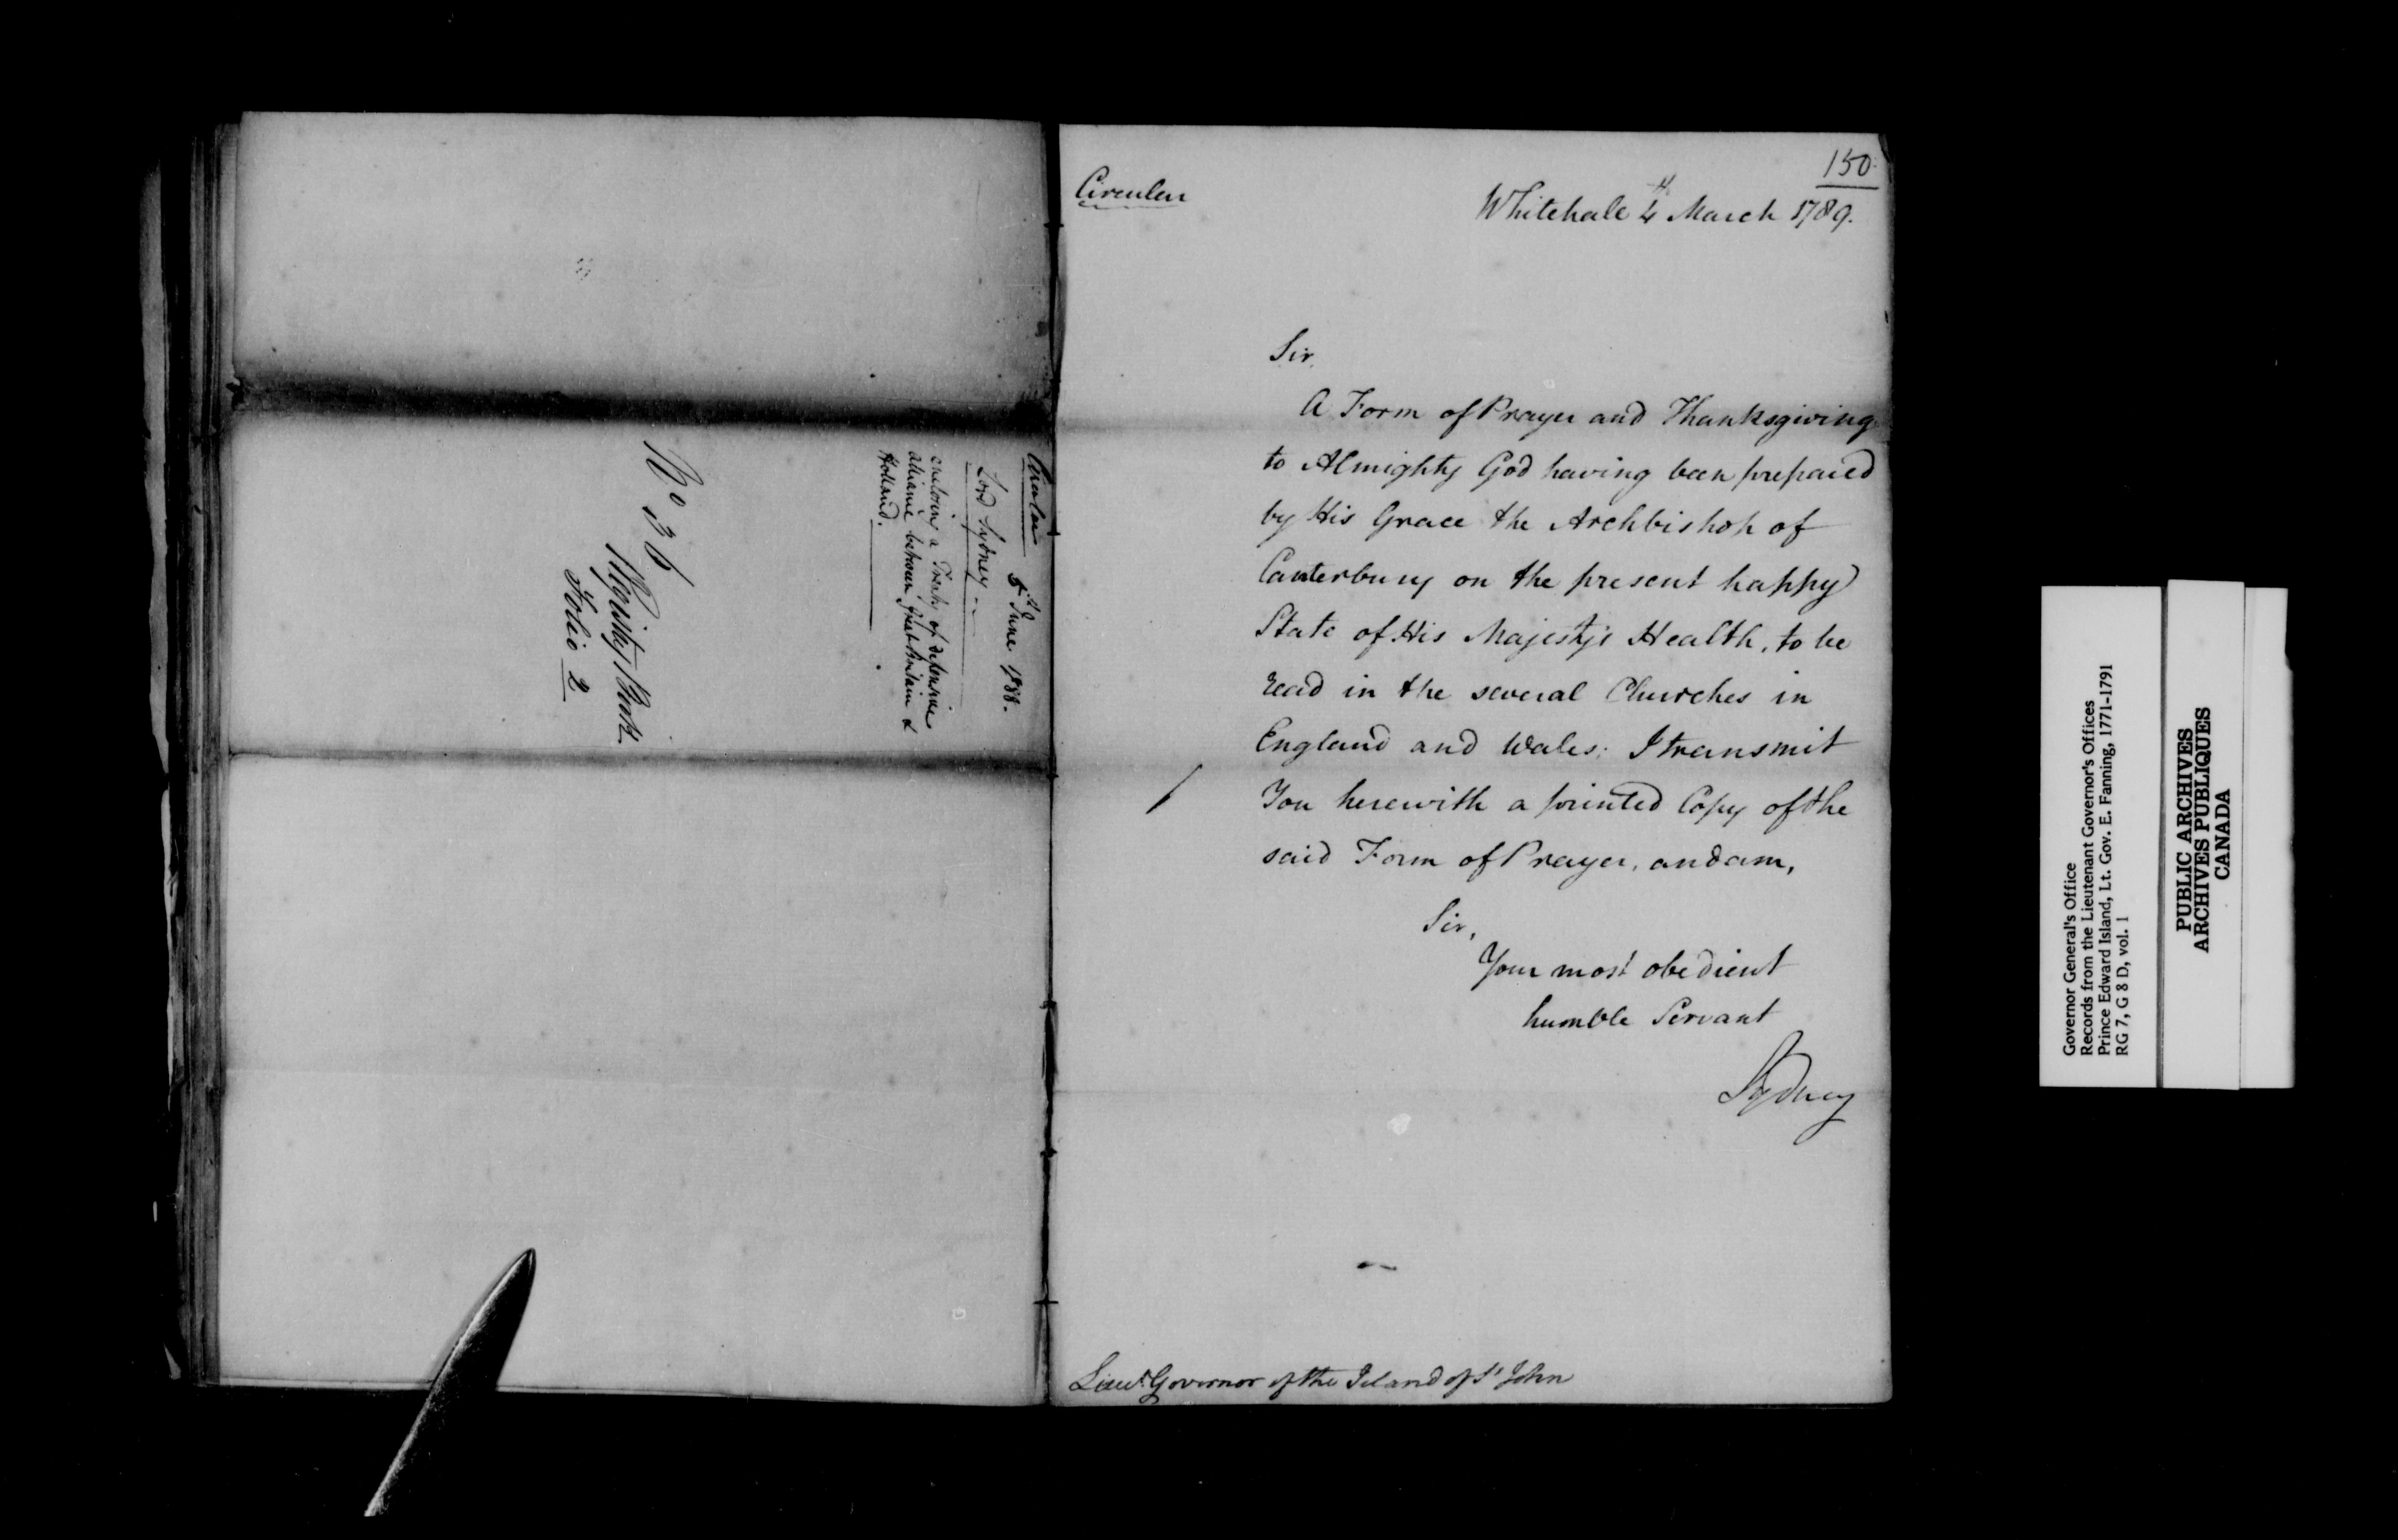 Circular
5th June 1788.
Lord Sydney
enclosing a Treaty of defensive
alliance between Great Britain &
Holland.
No 36
Registry Book
Folio 2
150
Circular
Whitehall 4th March 1789.
Sir,
A Form of Prayer and Thanksgiving
to Almighty God having been prepared
by His Grace the Archbishop of
Canterbury on the present happy
State of His Majesty's Health, to be
read in the several Churches in
England and Wales; I transmit
You herewith a printed Copy of the
said Form of Prayer, and am,
Sir,
Your most obedient
humble Servant
Sydney
Lieut. Governor of the Island of St John
Governor General's Office
Records from the Lieutenant Governor's Offices
Prince Edward Island, Lt. Gov. E. Fanning, 1771-1791
RG 7, G 8 D, vol. 1
PUBLIC ARCHIVES
ARCHIVES PUBLIQUES
CANADA